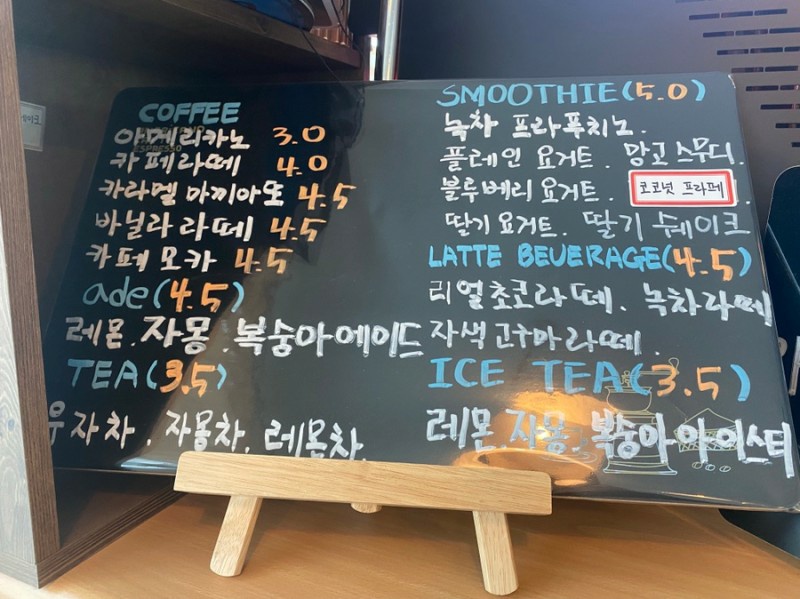 COFFEE
아메리카노 3.0
카페라떼 4.0
카라멜 마끼아또 4.5
바닐라 라떼 4.5
카페모카 4.5
ade(4.5)
레몬.자몽.복숭아에이드
TEA(3.5)
유자차.자몽차.레몬차
SMOOTHIE(5.0)
녹차 프라푸치노.
플레인 요거트. 망고스무디.
블루베리 요거트. 코코넛 프라페
딸기요거트. 딸기 쉐이크
LATTE BEUERAGE(4.5)
리얼초코라떼. 녹차라떼
자색고구마라떼.
ICE TEA(3.5)
레몬.자몽.복숭아아이스티